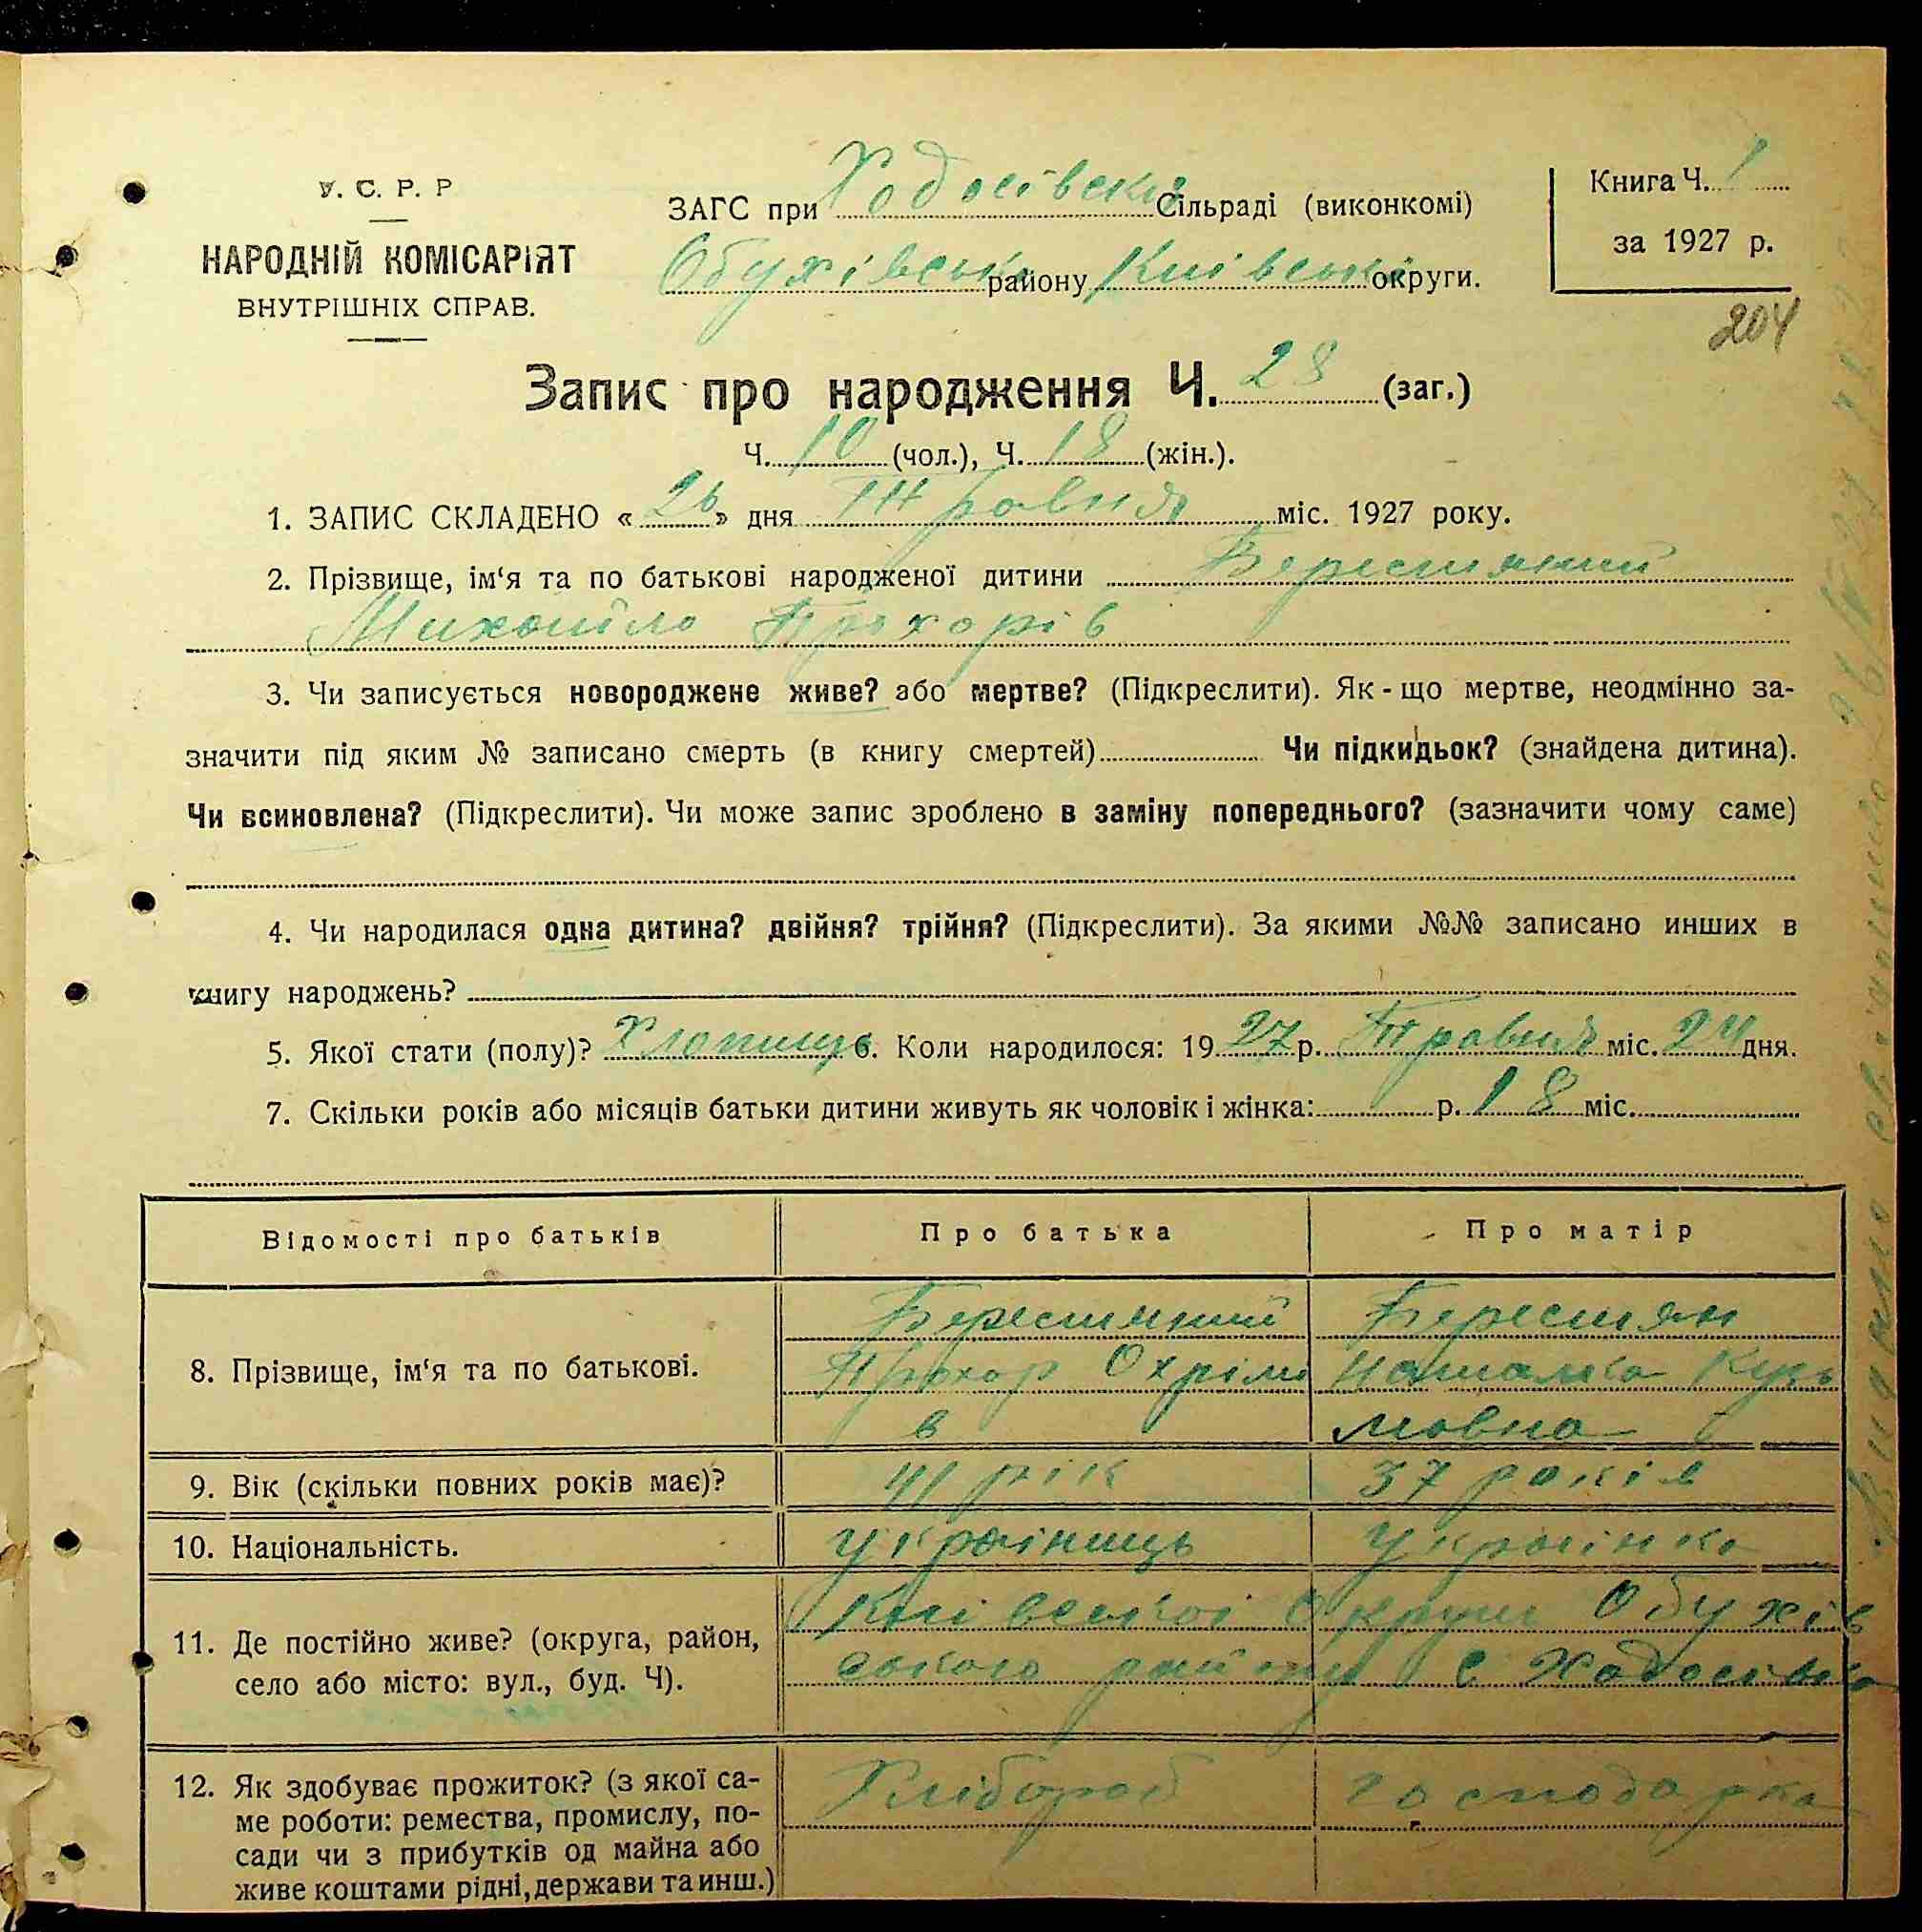 У. С. Р. Р
НАРОДНІЙ КОМІСАРІЯТ
ВНУТРІШНІХ СПРАВ.
ЗАГС при Ходосівські Сільраді (виконкомі)
Обухівськ району Київської округи.
Книга Ч. 1
за 1927 р.
204
Запис про народження Ч. 28 (заг.)
Ч. 10 (чол.), Ч. 18 (жін.).
1. ЗАПИС СКЛАДЕНО « 26 » дня Травня міс. 1927 року.
2. Прізвище, ім‘я та по батькові народженої дитини Берестяний
Михайло Прохорів
3. Чи записується новороджене живе? або мертве? (Підкреслити). Як - що мертве, неодмінно за-
значити під яким № записано смерть (в книгу смертей) Чи підкидьок? (знайдена дитина).
Чи всиновлена? (Підкреслити). Чи може запис зроблено в заміну попереднього? (зазначити чому саме)
4. Чи народилася одна дитина? двійня? трійня? (Підкреслити). За якими №№ записано инших в
книгу народжень?
5. Якої стати (полу)? Хлопець 6. Коли народилося: 19 27 р. Травня міс. 24 дня.
7. Скільки років або місяців батьки дитини живуть як чоловік і жінка: р. 18 міс.
Відомості про батьків Про батька Про матір
8. Прізвище, ім‘я та по батькові.
Берестяний Берестян
Прохор Охрімо Наталка Кузь
в мовна
9. Вік (скільки повних років має)? 41 рік 37 років
10. Національність. українець українка
11. Де постійно живе? (округа, район,
село або місто: вул., буд. Ч).
Київської Округи Обухів
ського району с Ходосівка
12. Як здобуває прожиток? (з якої са-
ме роботи: ремества, промислу, по-
сади чи з прибутків од майна або
живе коштами рідні, держави та инш.)
Хлібороб господарка